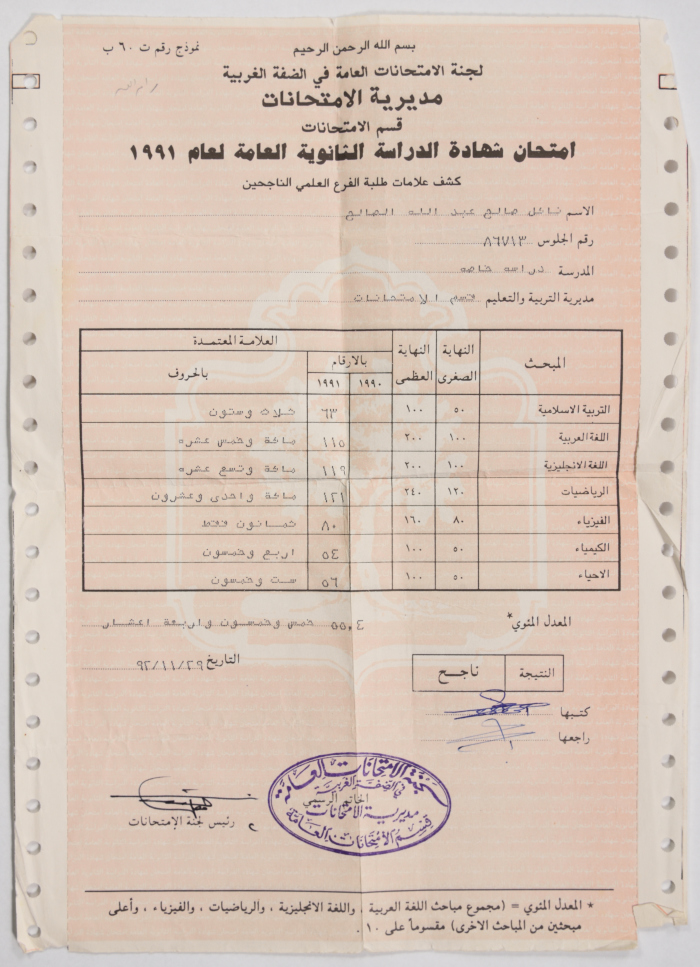 بسم الله الرحمن الرحيم
نموذج رقم ت ٦٠ ب
لجنة الامتحانات العامة في الضفة الغربية
مديرية الامتحانات
قسم الامتحانات
امتحان شهادة الدراسة الثانوية العامة لعام ١٩٩١
كشف علامات طلبة الفرع العلمي الناجحين
الاسم نائل صالح عبد الله الصالح
رقم الجلوس ٨٦٧١٣
المدرسة دراسه خاصه
مديرية التربية والتعليم قسم الامتحانات
المبحث النهاية الصغرى النهاية العظمى العلامة المعتمدة
بالارقام بالحروف
١٩٩٠ ١٩٩١
التربية الاسلامية ٥٠ ١٠٠ ٦٣ ثلاث وستون
اللغة العربية ١٠٠ ٢٠٠ ١١٥ مائة وخمس عشره
اللغة الانجليزية ١٠٠ ٢٠٠ ١١٩ مائة وتسع عشره
الرياضيات ١٢٠ ٢٤٠ ١٢١ مائة واحدى وعشرون
الفيزياء ٨٠ ١٦٠ ٨٠ ثمانون فقط
الكيمياء ٥٠ ١٠٠ ٥٤ اربع وخمسون
الاحياء ٥٠ ١٠٠ ٥٦ ست وخمسون
المعدل المئوي* ٥٥,٤ خمس وخمسون واربعة اعشار
التاريخ ٩٢/١١/٢٩
النتيجة ناجح
كتبها
راجعها
لجنة الامتحانات العامة
في الضفة الغربية
الخاتم الرسمي
مديرية الامتحانات
قسم الامتحانات العامة
رئيس لجنة الإمتحانات
* المعدل المئوي = (مجموع مباحث اللغة العربية ، واللغة الانجليزية ، والرياضيات ، والفيزياء ، وأعلى
مبحثين من المباحث الاخرى) مقسوماً على ١٠ .